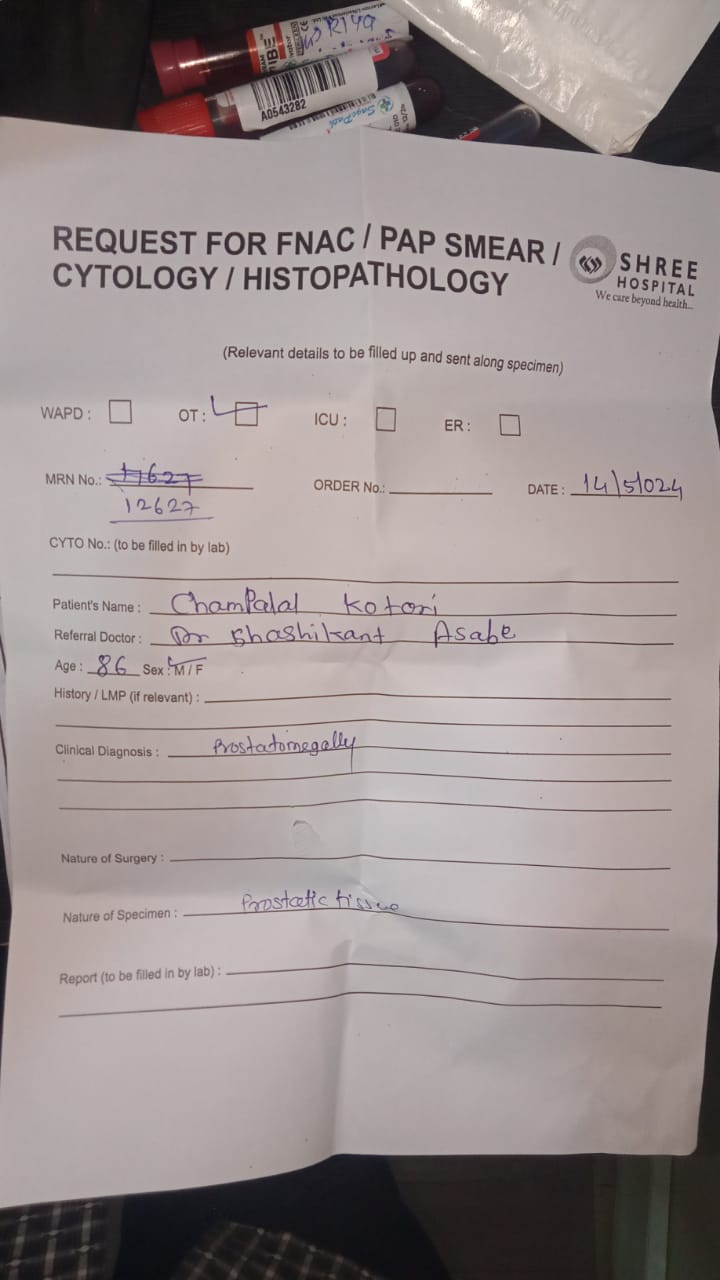 RIYA
A0543282
SagePath
REQUEST FOR FNAC / PAP SMEAR /
CYTOLOGY / HISTOPATHOLOGY
SHREE
HOSPITAL
We care beyond health...
(Relevant details to be filled up and sent along specimen)
WAPD : OT : ICU : ER :
MRN No.: 11627 ORDER No.: DATE : 14/5/024
12627
CYTO No.: (to be filled in by lab)
Patient's Name : ChamPalal Kotori
Referral Doctor : Dr Shashikant Asabe
Age : 86 Sex : M / F
History / LMP (if relevant) :
Clinical Diagnosis : Prostatomegally
Nature of Surgery :
Nature of Specimen : Prostatic tissue
Report (to be filled in by lab) :